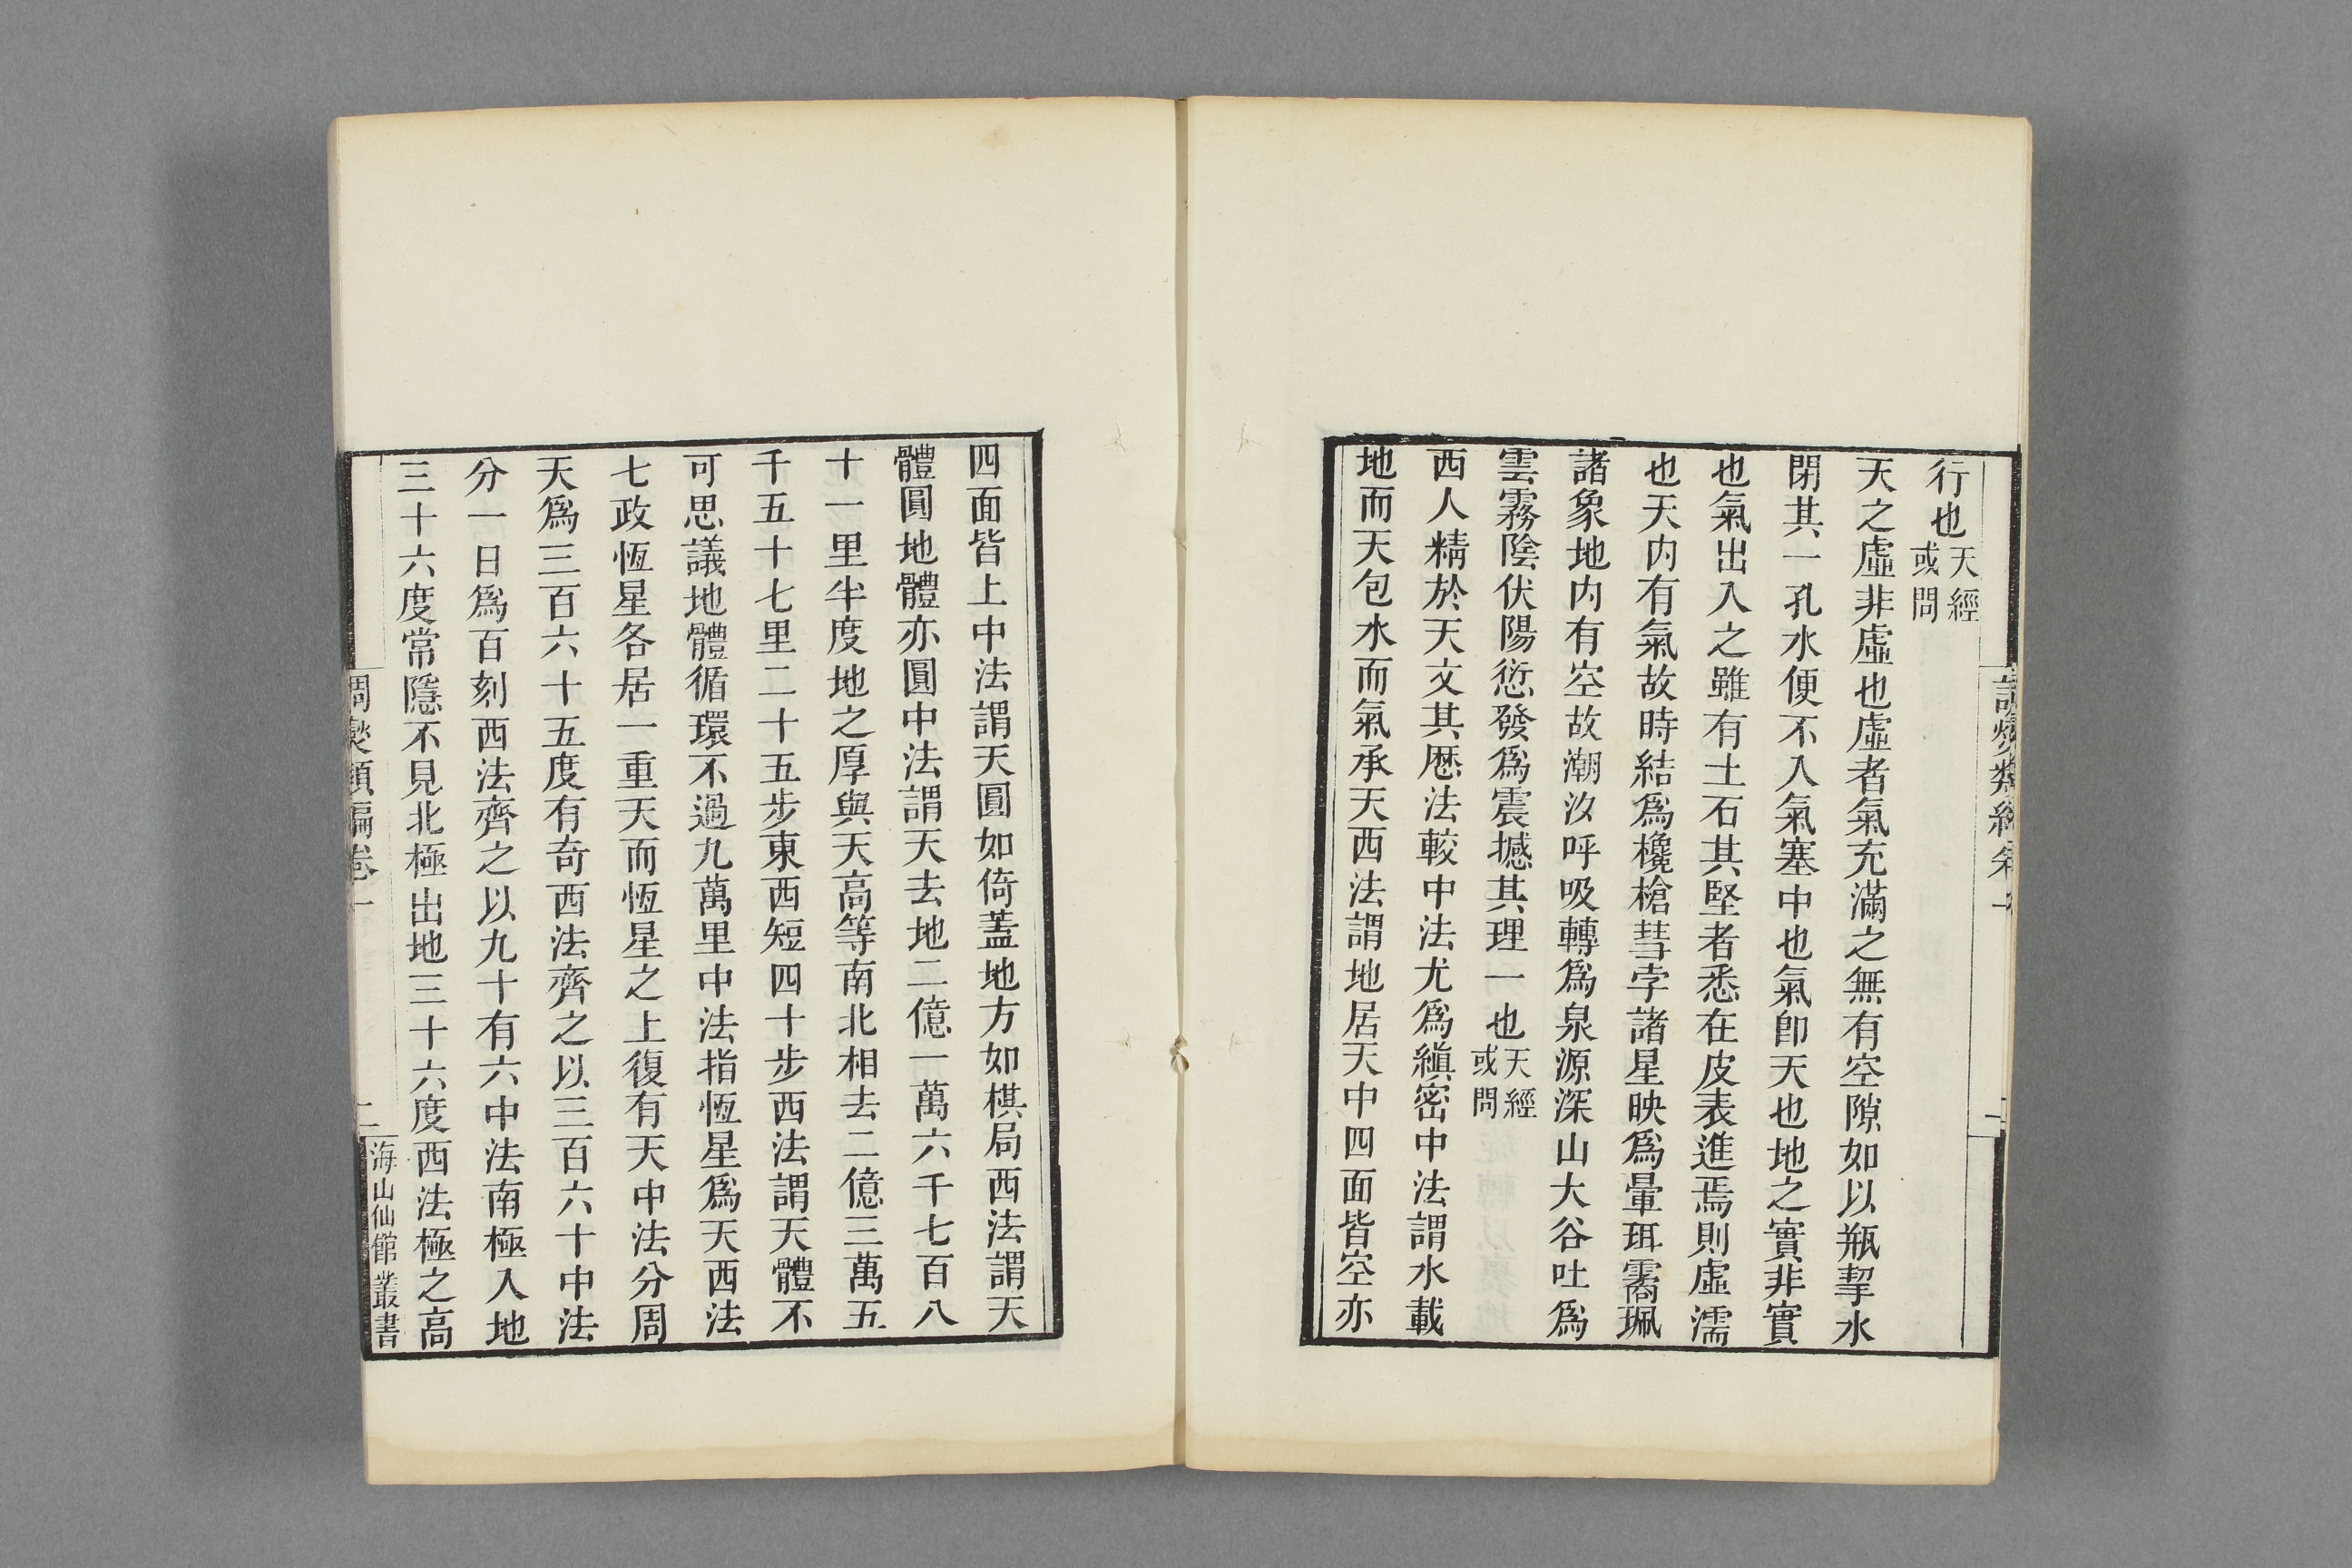 行也天經或問
天之虛非虛也虛者氣充滿之無有空隙如以瓶挈水
閉其一孔水便不入氣塞中也氣卽天也地之實非實
也氣出入之雖有土石其堅者悉在皮表進焉則虛濡
也天內有氣故時結爲欃槍彗孛諸星映爲暈珥霱珮
諸象地內有空故潮汐呼吸轉爲泉源深山大谷吐爲
雲霧陰伏陽愆發爲震撼其理一也天經或問
西人精於天文其厯法較中法尤爲縝密中法謂水載
地而天包水而氣承天西法謂地居天中四面皆空亦
四面皆上中法謂天圓如倚蓋地方如棋局西法謂天
體圓地體亦圓中法謂天去地二億一萬六千七百八
十一里半度地之厚與天高等南北相去二億三萬五
千五十七里二十五步東西短四十步西法謂天體不
可思議地體循環不過九萬里中法指恆星爲天西法
七政恆星各居一重天而恆星之上復有天中法分周
天爲三百六十五度有奇西法齊之以三百六十中法
分一日爲百刻西法齊之以九十有六中法南極入地
三十六度常隱不見北極出地三十六度西法極之高
卷一
二
海山仙館叢書